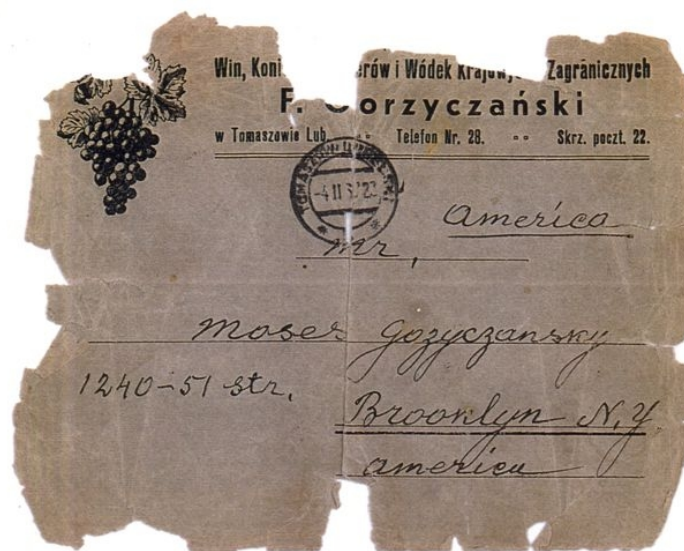 Win, erów i Wódek Zagranicznych
F. Gorzyczański
w Tomaszowie Lub. Telefon Nr. 28. Skrz. poczt. 22.
TOMASZÓW LUBELSKI
America
Mr,
Moses Gozyczansky
1240-51 str.
Brooklyn N.Y
america